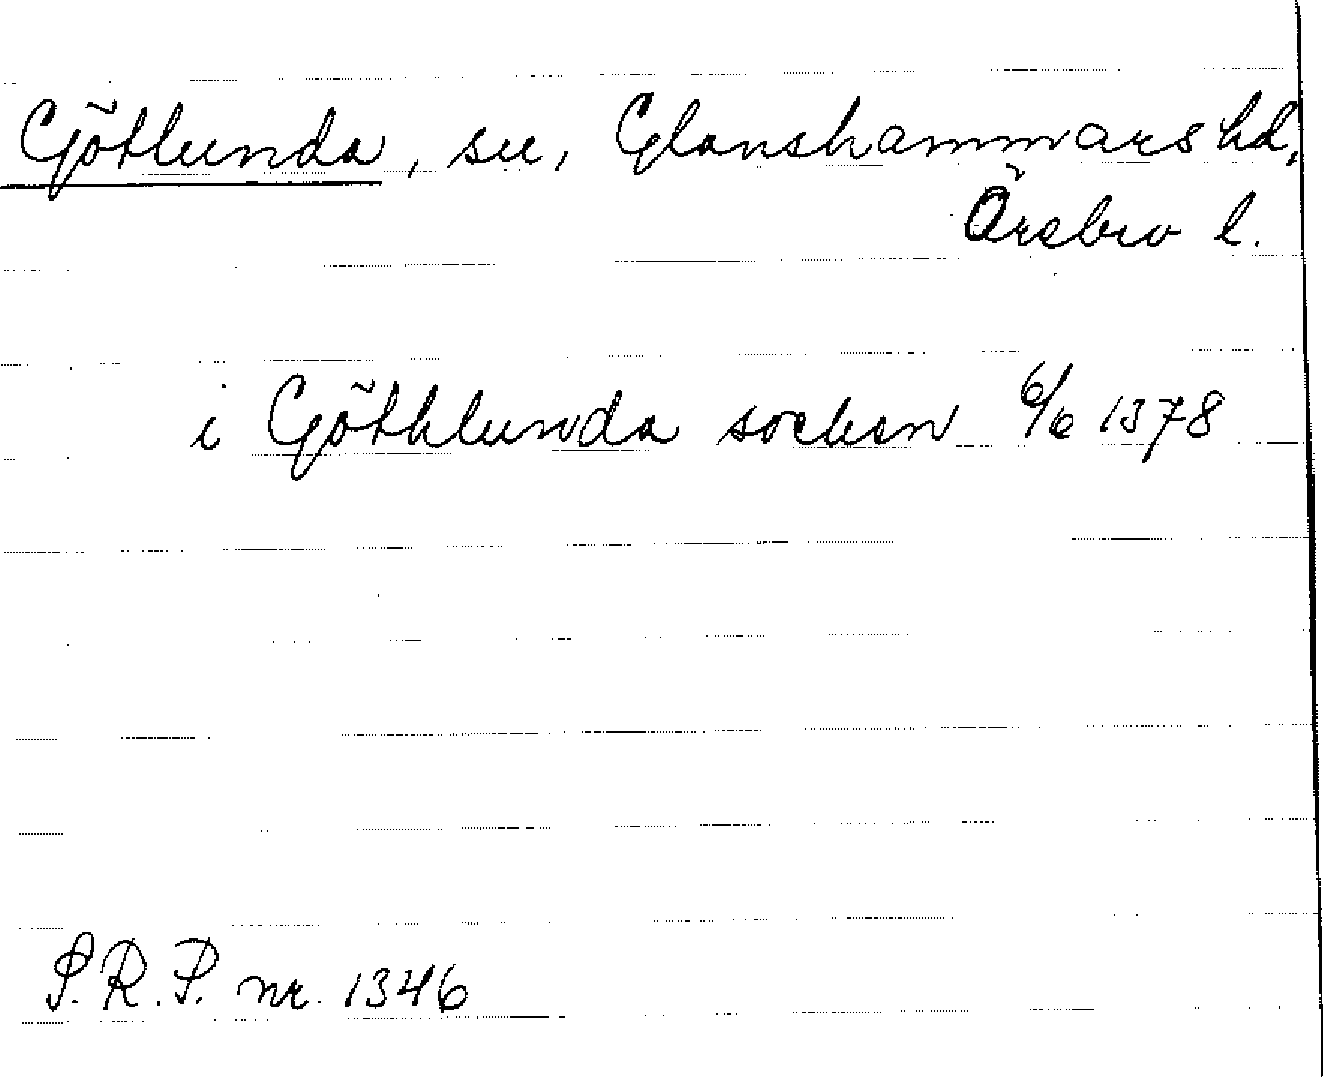 Götlunda, sn, Glanshammars hd,
Örebro l.
i Göthlunda socken 6/6 1378
S.R.P. nr. 1346